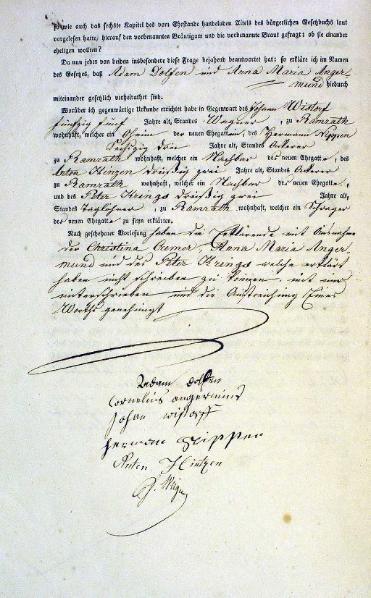 sowie auch das sechste Kapitel des vom Ehestande handelnden Titels des bürgerlichen Gesetzbuchs laut
vorgelesen hatte, hierauf den vorbenannten Bräutigam und die vorbenannte Braut gefragt: ob sie einander
ehelichen wollen?
Da nun jeder von beiden insbesondere diese Frage bejahend beantwortet hat: so erkläre ich im Namen
des Gesetzes, daß Adam Dolfen und Anna Maria Anger
mund hiedurch
miteinander gesetzlich verheirathet sind.
Worüber ich gegenwärtige Urkunde errichtet habe in Gegenwart des Johann
fünfzig fünf Jahre alt, Standes Wagner, zu Ramrath
wohnhaft, welcher ein Oheim des neuen Ehegatten, des Hermann
sechszig drei Jahre alt, Standes Ackerer
zu Ramrath wohnhaft, welcher ein Nachbar des neuen Ehegatten, des
Anton dreißig zwei Jahre alt, Standes Ackerer
zu Ramrath wohnhaft, welcher ein Nachbar des neuen Ehegatten,
und des Peter Krings dreißig zwei Jahre alt,
Standes Taglöhner zu Ramrath wohnhaft, welcher ein Schwager
des neuen Ehegatten zu seyn erklärten.
Nach geschehener Vorlesung haben die mit Ausnahme
der Christina Cremer Anna Maria Anger
mund und des Peter Krings welche erklärt
haben nicht schreiben zu können, mit uns
unterschrieben und die
Worts genehmigt
Adam dolfen
Cornelius angermund
Johan
herman
Anton Hintzen